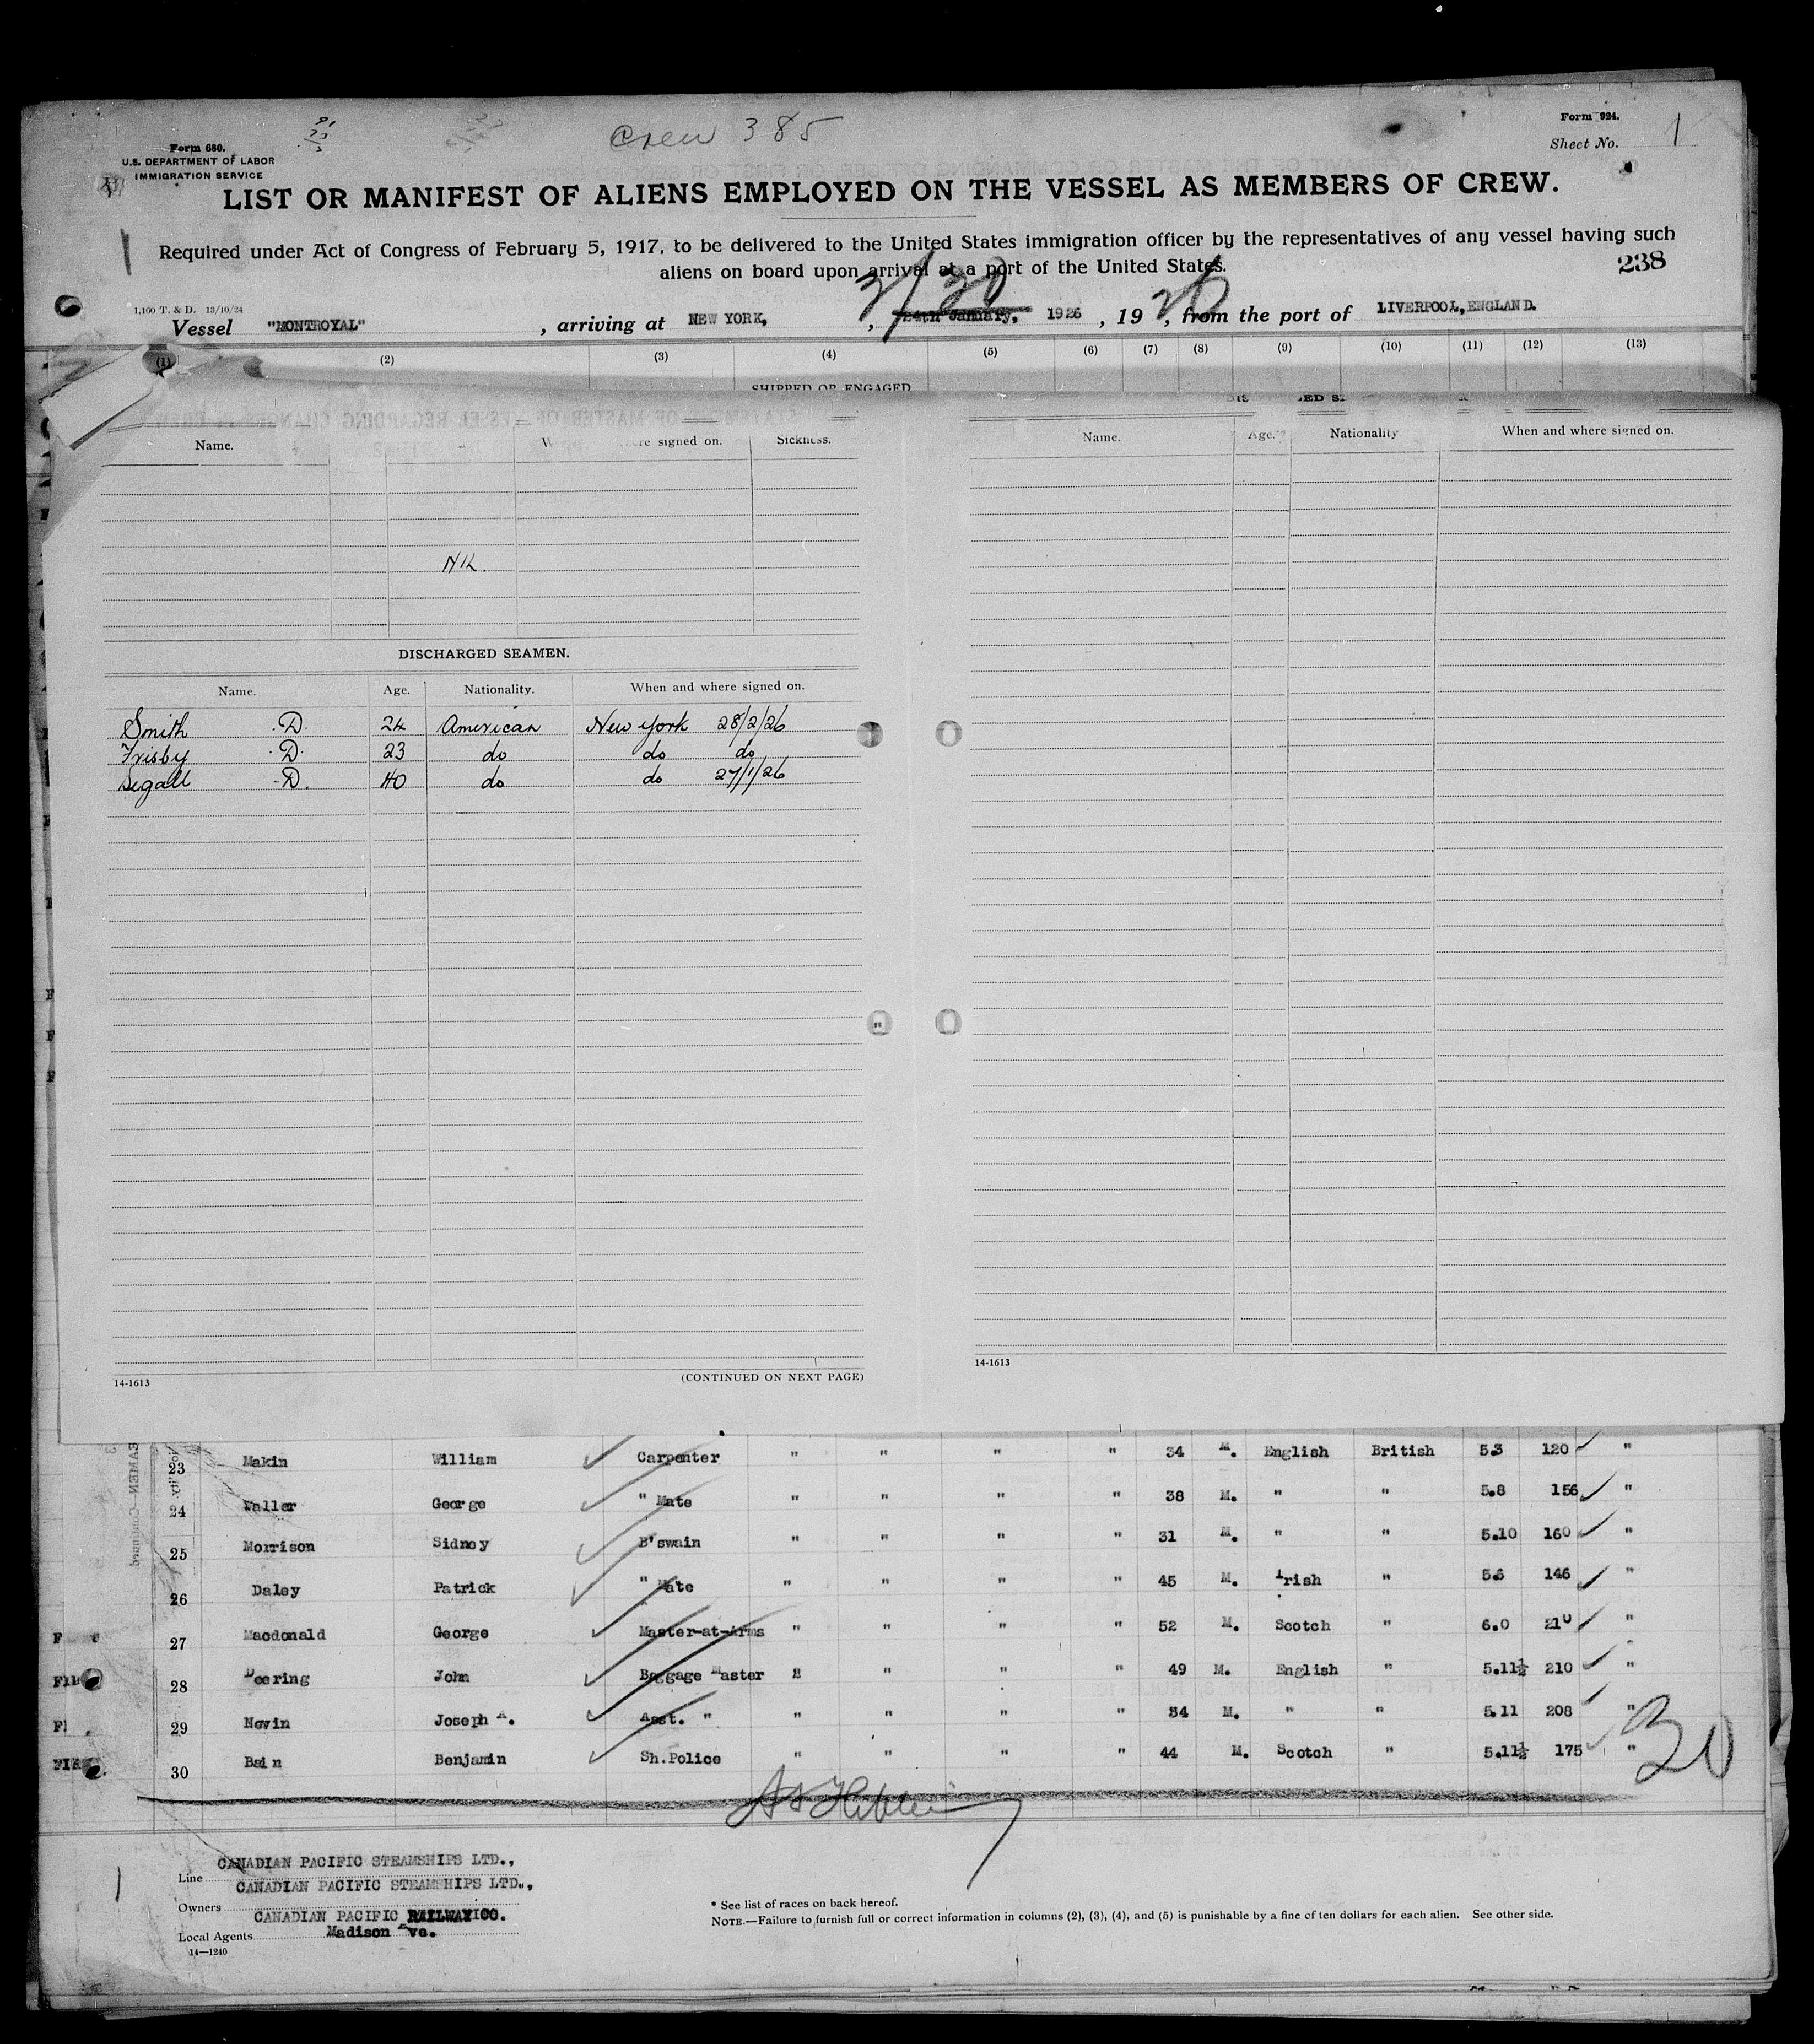 Crew 385
Form 924.
Sheet No. 1
Form 680.
U.S. DEPARTMENT OF LABOR
IMMIGRATION SERVICE
LIST OR MANIFEST OF ALIENS EMPLOYED ON THE VESSEL AS MEMBERS OF CREW.
Required under Act of Congress of February 5, 1917, to be delivered to the United States immigration officer by the representatives of any vessel having such
aliens on board upon arrival at a port of the United States.
238
1,100 T. & D. 13/10/24
3/30
Vessel "MONTROYAL", arriving at NEW YORK, , 24th January, 1926, 1926, from the port of LIVERPOOL, ENGLAND.
(1) (2) (3) (4) (5) (6) (7) (8) (9) (10) (11) (12) (13)
SHIPPED OR ENGAGED
Name. signed on. Sickness.
Name. Age. Nationality When and where signed on.
DISCHARGED SEAMEN.
Name. Age. Nationality. When and where signed on.
Smith D. 24 American New York 28/2/26
Frisby D. 23 do do do
Segall D. 40 do do 27/1/26
14-1613
(CONTINUED ON NEXT PAGE)
14-1613
23 Makin William Carpenter " " " " 34 M. English British 5.3 120 "
24 Waller George " Mate " " " " 38 M. " " 5.8 156 "
25 Morrison Sidney B'swain " " " " 31 M. " " 5.10 160 "
26 Daley Patrick " Mate " " " " 45 M. Irish " 5.6 146 "
27 Macdonald George Master-at-Arms " " " " 52 M. Scotch " 6.0 210 "
28 Deering John Baggage Master " " " " 49 M. English " 5.11½ 210 "
29 Nevin Joseph A. Asst. " " " " " 34 M. " " 5.11 208 "
30 Bain Benjamin Sh.Police " " " " 44 M. Scotch " 5.11½ 175 "
30
Line CANADIAN PACIFIC STEAMSHIPS LTD.,
Owners CANADIAN PACIFIC STEAMSHIPS LTD.,
Local Agents CANADIAN PACIFIC RAILWAY CO.
Madison Ave.
14—1240
* See list of races on back hereof.
NOTE.—Failure to furnish full or correct information in columns (2), (3), (4), and (5) is punishable by a fine of ten dollars for each alien. See other side.